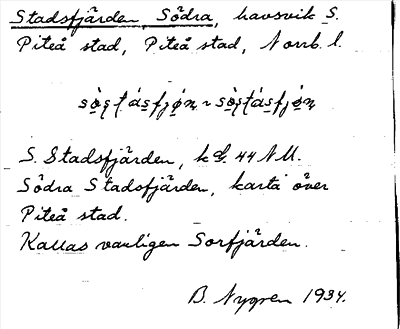 Stadsfjärden, Södra, havsvik S.
Piteå stad, Piteå stad, Norrb. l.
S. Stadsfjärden, 44 NU.
Södra Stadsfjärden, karta över
Piteå stad.
Kallas vanligen Sörfjärden.
B. Nygren 1934.